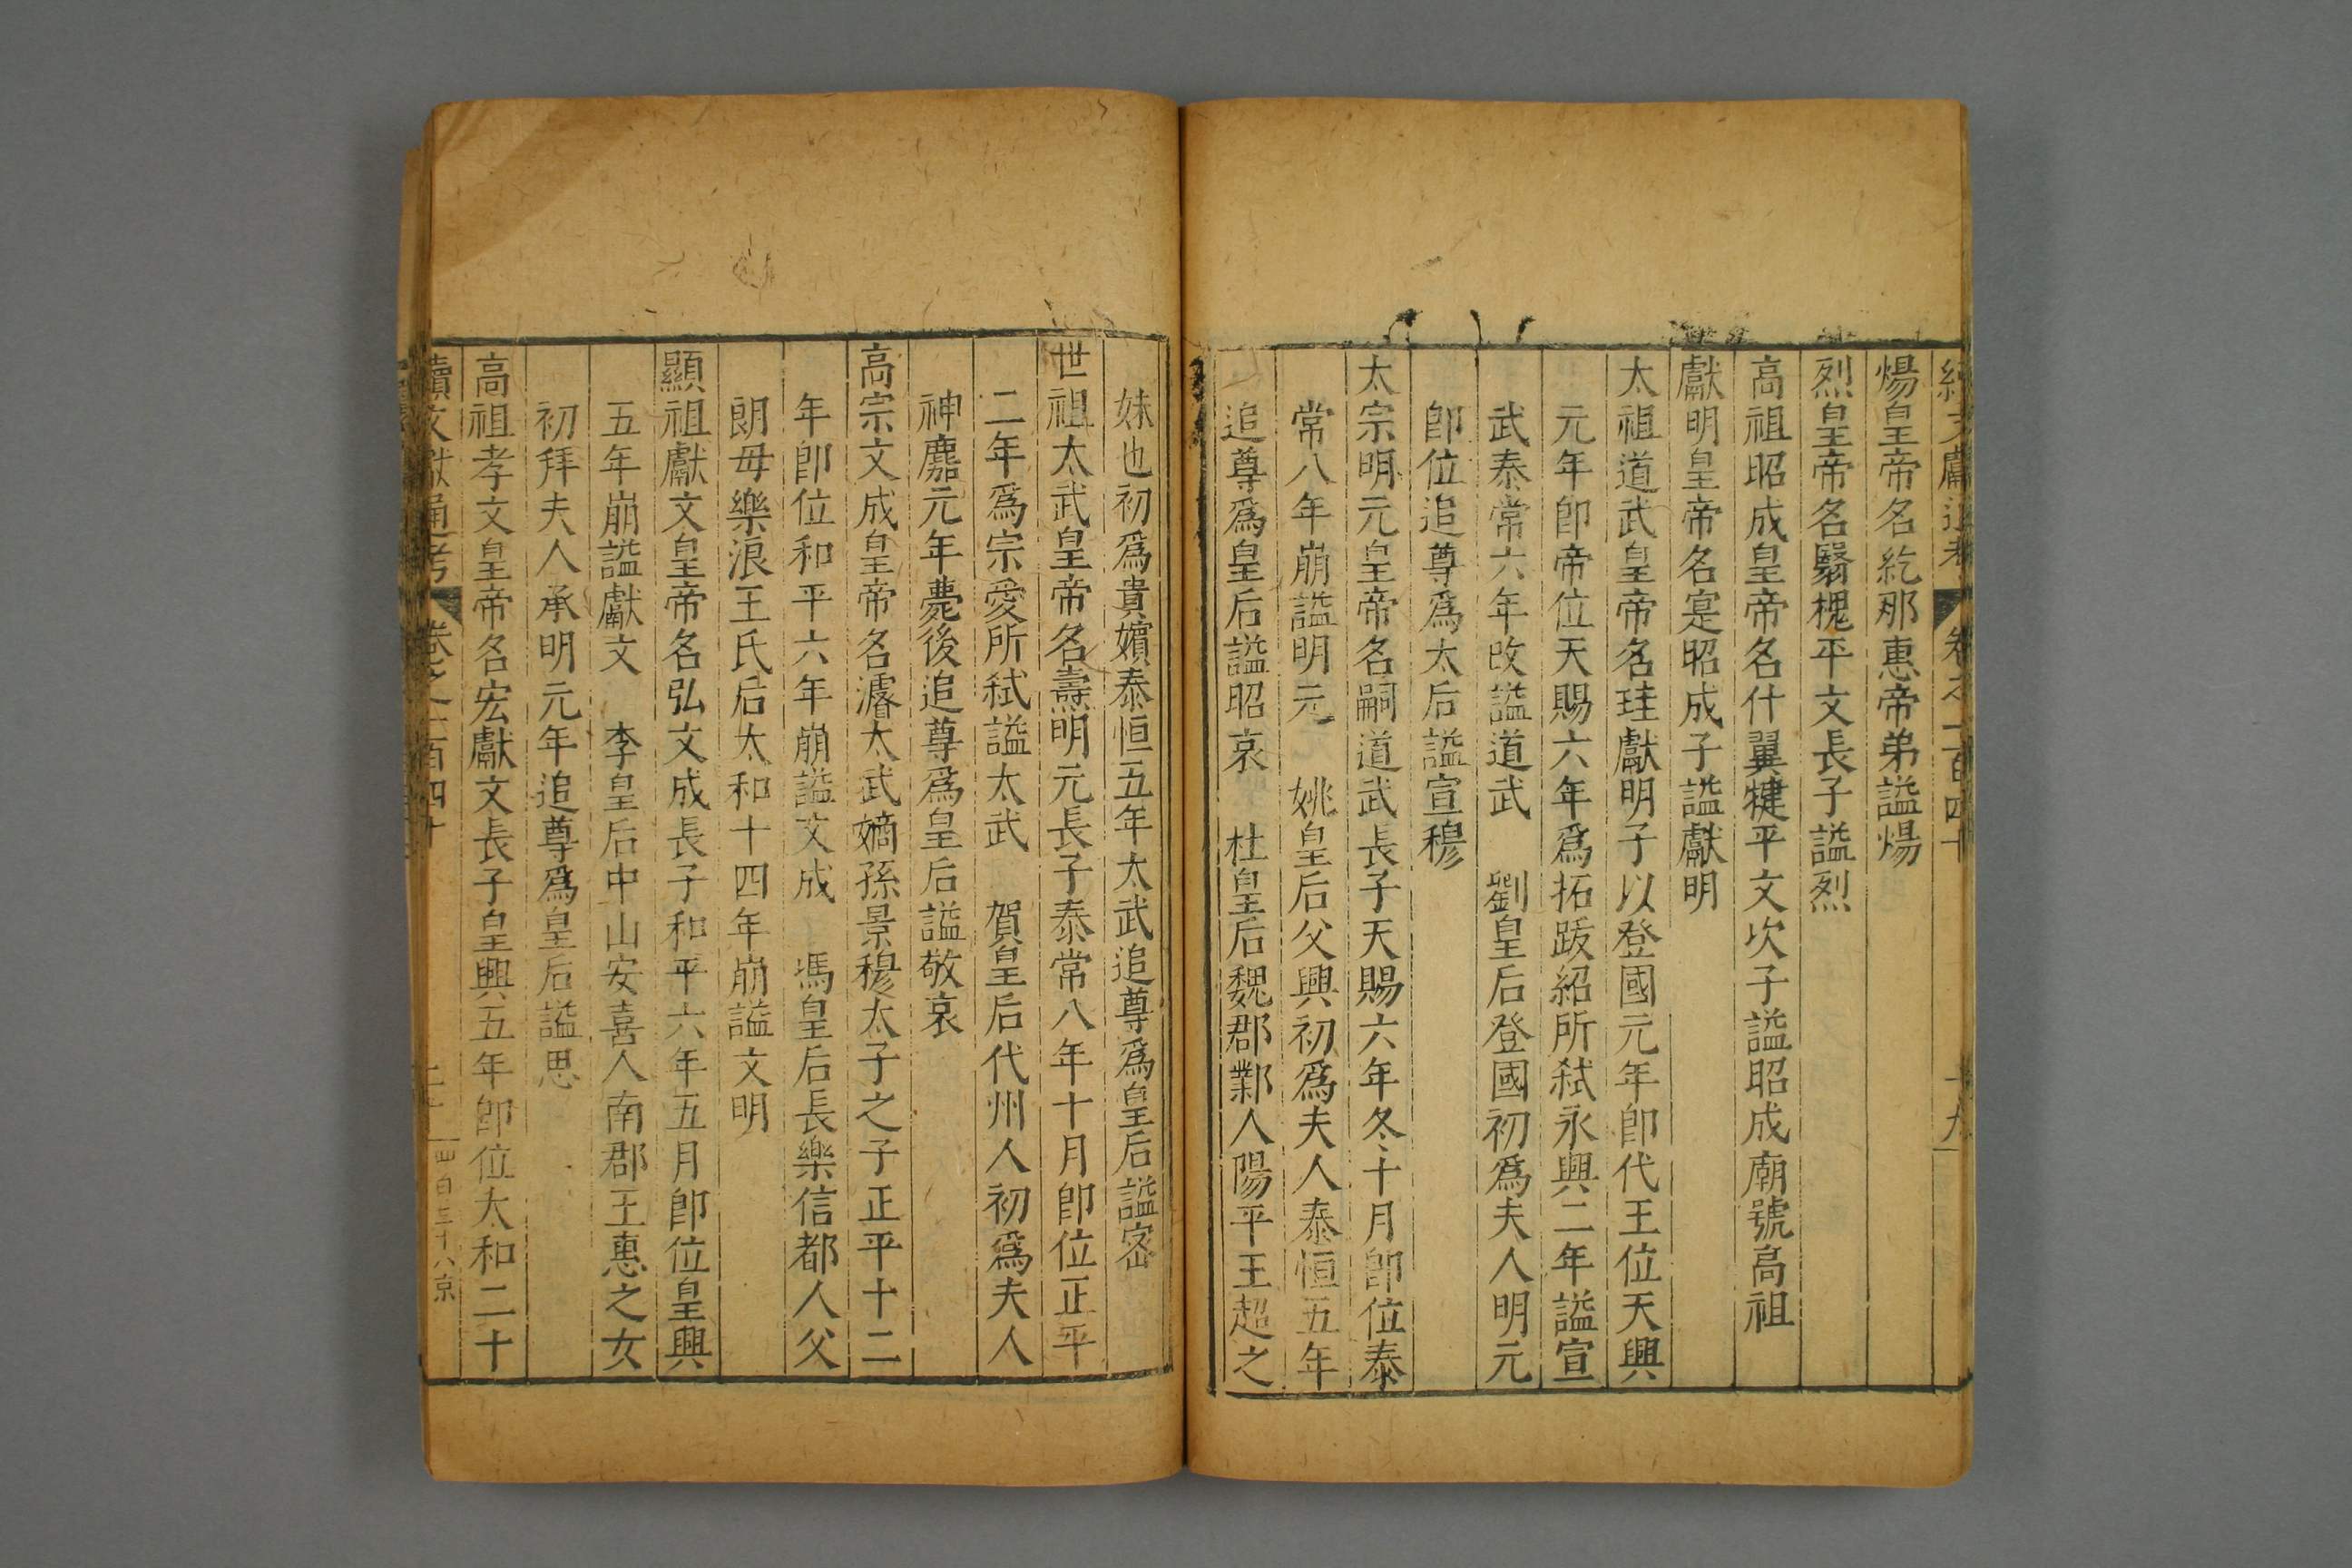 續文獻通考 卷之一百四十 十九
煬皇帝名紇那惠帝弟謚煬
烈皇帝名翳槐平文長子謚烈
高祖昭成皇帝名什翼犍平文次子謚昭成廟號高祖
獻明皇帝名寔昭成子謚獻明
太祖道武皇帝名珪獻明子以登國元年卽代王位天興
元年卽帝位天賜六年爲拓跋紹所弑永興二年謚宣
武泰常六年改謚道武 劉皇后登國初爲夫人明元
卽位追尊爲太后謚宣穆
太宗明元皇帝名嗣道武長子天賜六年冬十月卽位泰
常八年崩謚明元 姚皇后父興初爲夫人泰恒五年
追尊爲皇后謚昭哀 杜皇后魏郡鄴人陽平王超之
妹也初爲貴嬪泰恒五年太武追尊爲皇后謚密
世祖太武皇帝名燾明元長子泰常八年十月卽位正平
二年爲宗愛所弑謚太武 賀皇后代州人初爲夫人
神䴥元年薨後追尊爲皇后謚敬哀
高宗文成皇帝名濬太武嫡孫景穆太子之子正平十二
年卽位和平六年崩謚文成 馮皇后長樂信都人父
朗母樂浪王氏后太和十四年崩謚文明
顯祖獻文皇帝名弘文成長子和平六年五月卽位皇興
五年崩謚獻文 李皇后中山安喜人南郡王惠之女
初拜夫人承明元年追尊爲皇后謚思
高祖孝文皇帝名宏獻文長子皇興五年卽位太和二十
續文獻通考 卷之一百四十 四百三十八京